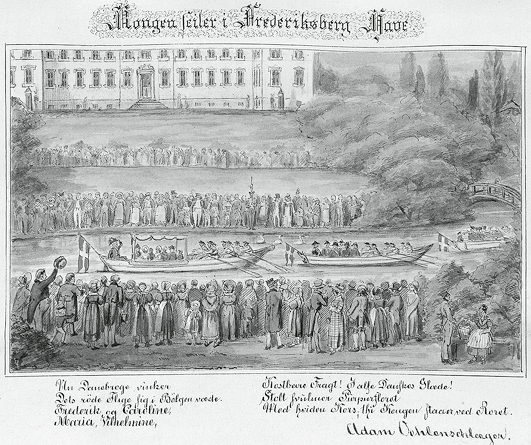 Kongen seiler i Frederiksberg Have
Nu Danebroge vinker
Dets röde Flige sig i Bölgen væde.
Frederik og Caroline,
Maria, Vilhelmine,
Kostbare Fragt! I alle Danskes Glæde!
Stolt hvælver Purpurfloret
Med hviden Kors, thi Kongen staaer ved Roret.
Adam Oehlenschlæger.